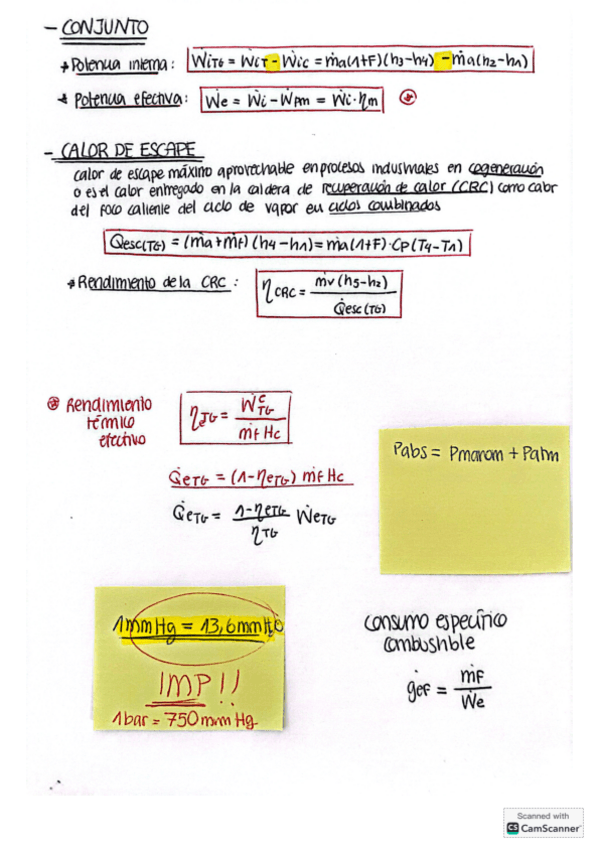 - CONJUNTO
* Potencia interna: ẆiTG = ẆiT - Ẇic = ṁa(1+F)(h3-h4) - ṁa(h2-h1)
* Potencia efectiva: Ẇe = Ẇi - Ẇpm = Ẇi·ηm ⊛
- CALOR DE ESCAPE
calor de escape máximo aprovechable en procesos industriales en cogeneración
o es el calor entregado en la caldera de recuperación de calor (CRC) como calor
del foco caliente del ciclo de vapor en ciclos combinados
Q̇esc(TG) = (ṁa+ṁf)(h4-h1) = ṁa(1+F)·Cp(T4-T1)
* Rendimiento de la CRC: ηCRC = ṁv(h5-h2) / Q̇esc(TG)
⊛ Rendimiento
térmico
efectivo
ηeTG = ẆeTG / ṁf Hc
Q̇eTG = (1-ηeTG) ṁf Hc
Q̇eTG = 1-ηeTG / ηTG ẆeTG
Pabs = Pmanom + Patm
1mmHg = 13,6mmH2O
IMP!!
1bar = 750mmHg
consumo específico
combustible
ġef = ṁF / Ẇe
Scanned with
CS CamScanner